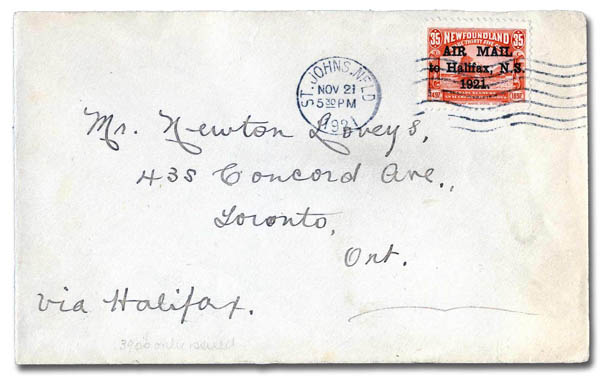 35 NEWFOUNDLAND 35
THIRTY FIVE
AIR MAIL
to Halifax, N.S.
1921.
ST. JOHNS, NFLD
NOV 21
5 30 PM
1921
Mr. Newton Loveys,
438 Concord Ave.,
Toronto,
Ont.
via Halifax.
only issued